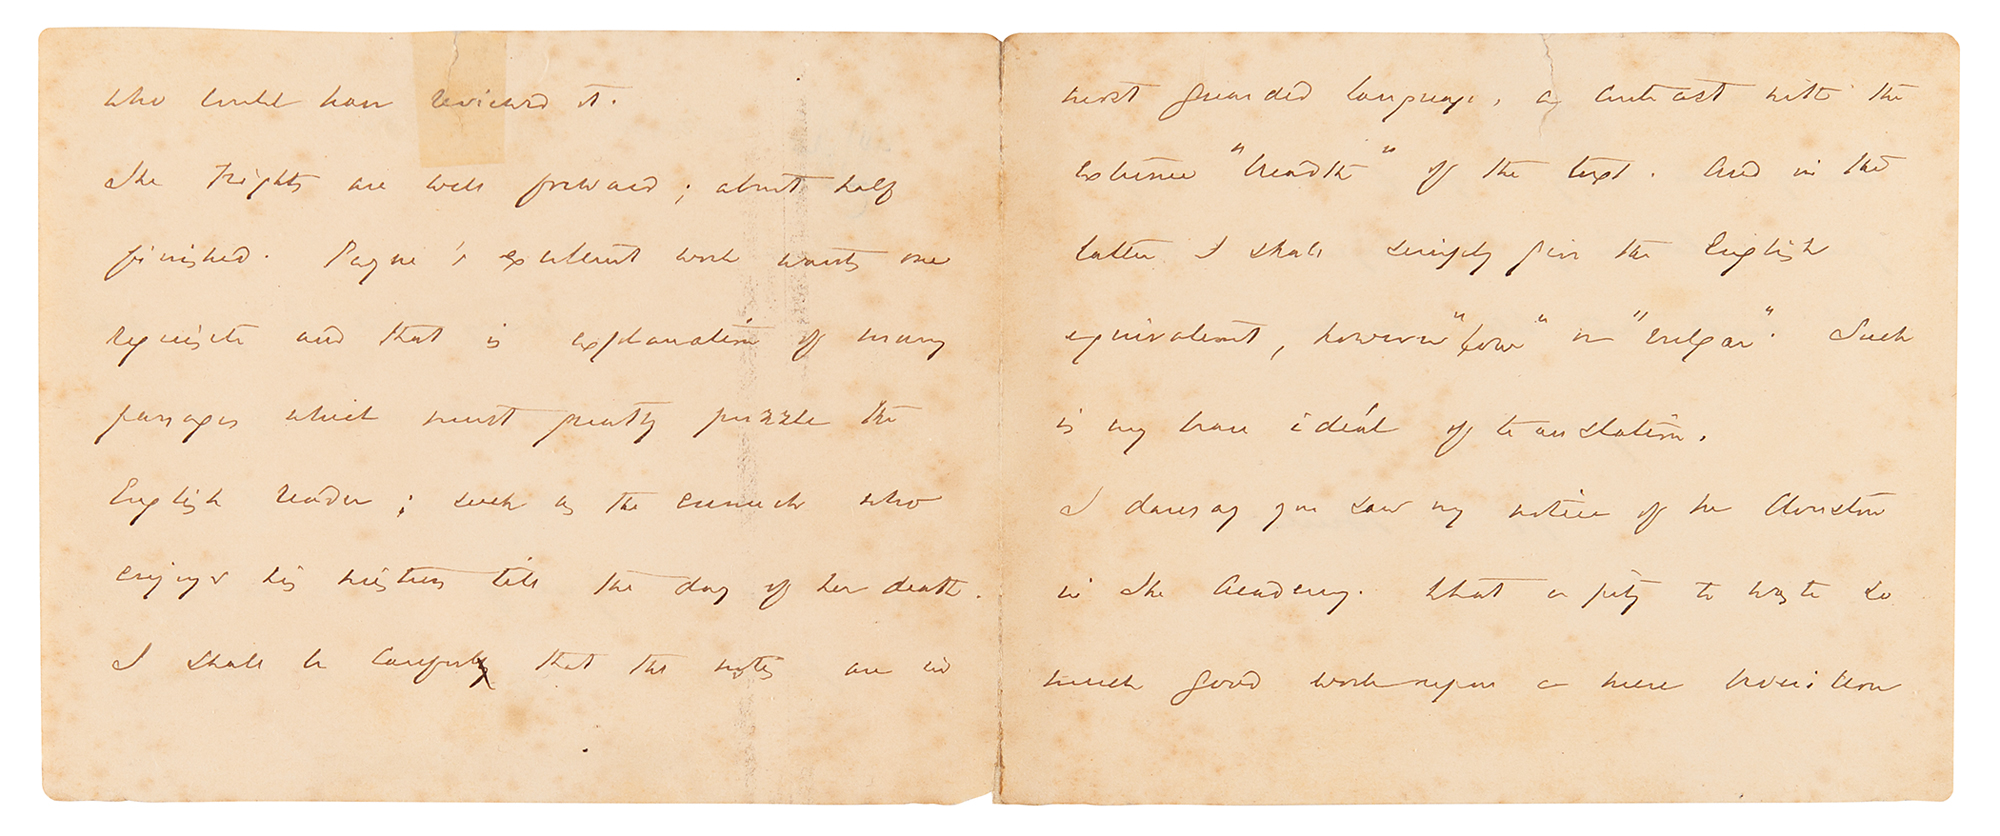 who could have reviewed it.
The Nights are well forward; about half
finished. Payne's excellent work wants one
requisite and that is explanation of many
passages which must greatly puzzle the
English reader; such as the eunuch who
enjoys his mistress till the day of her death.
I shall be careful that the notes are in
most guarded language, as contrast with the
extreme "breadth" of the text. And in the
latter I shall simply give the English
equivalent, however "low" or "vulgar". Such
is my beau idéal of translation.
I daresay you saw my notice of Mr Clouston
in The Academy. What a pity to waste so
much good work upon a mere